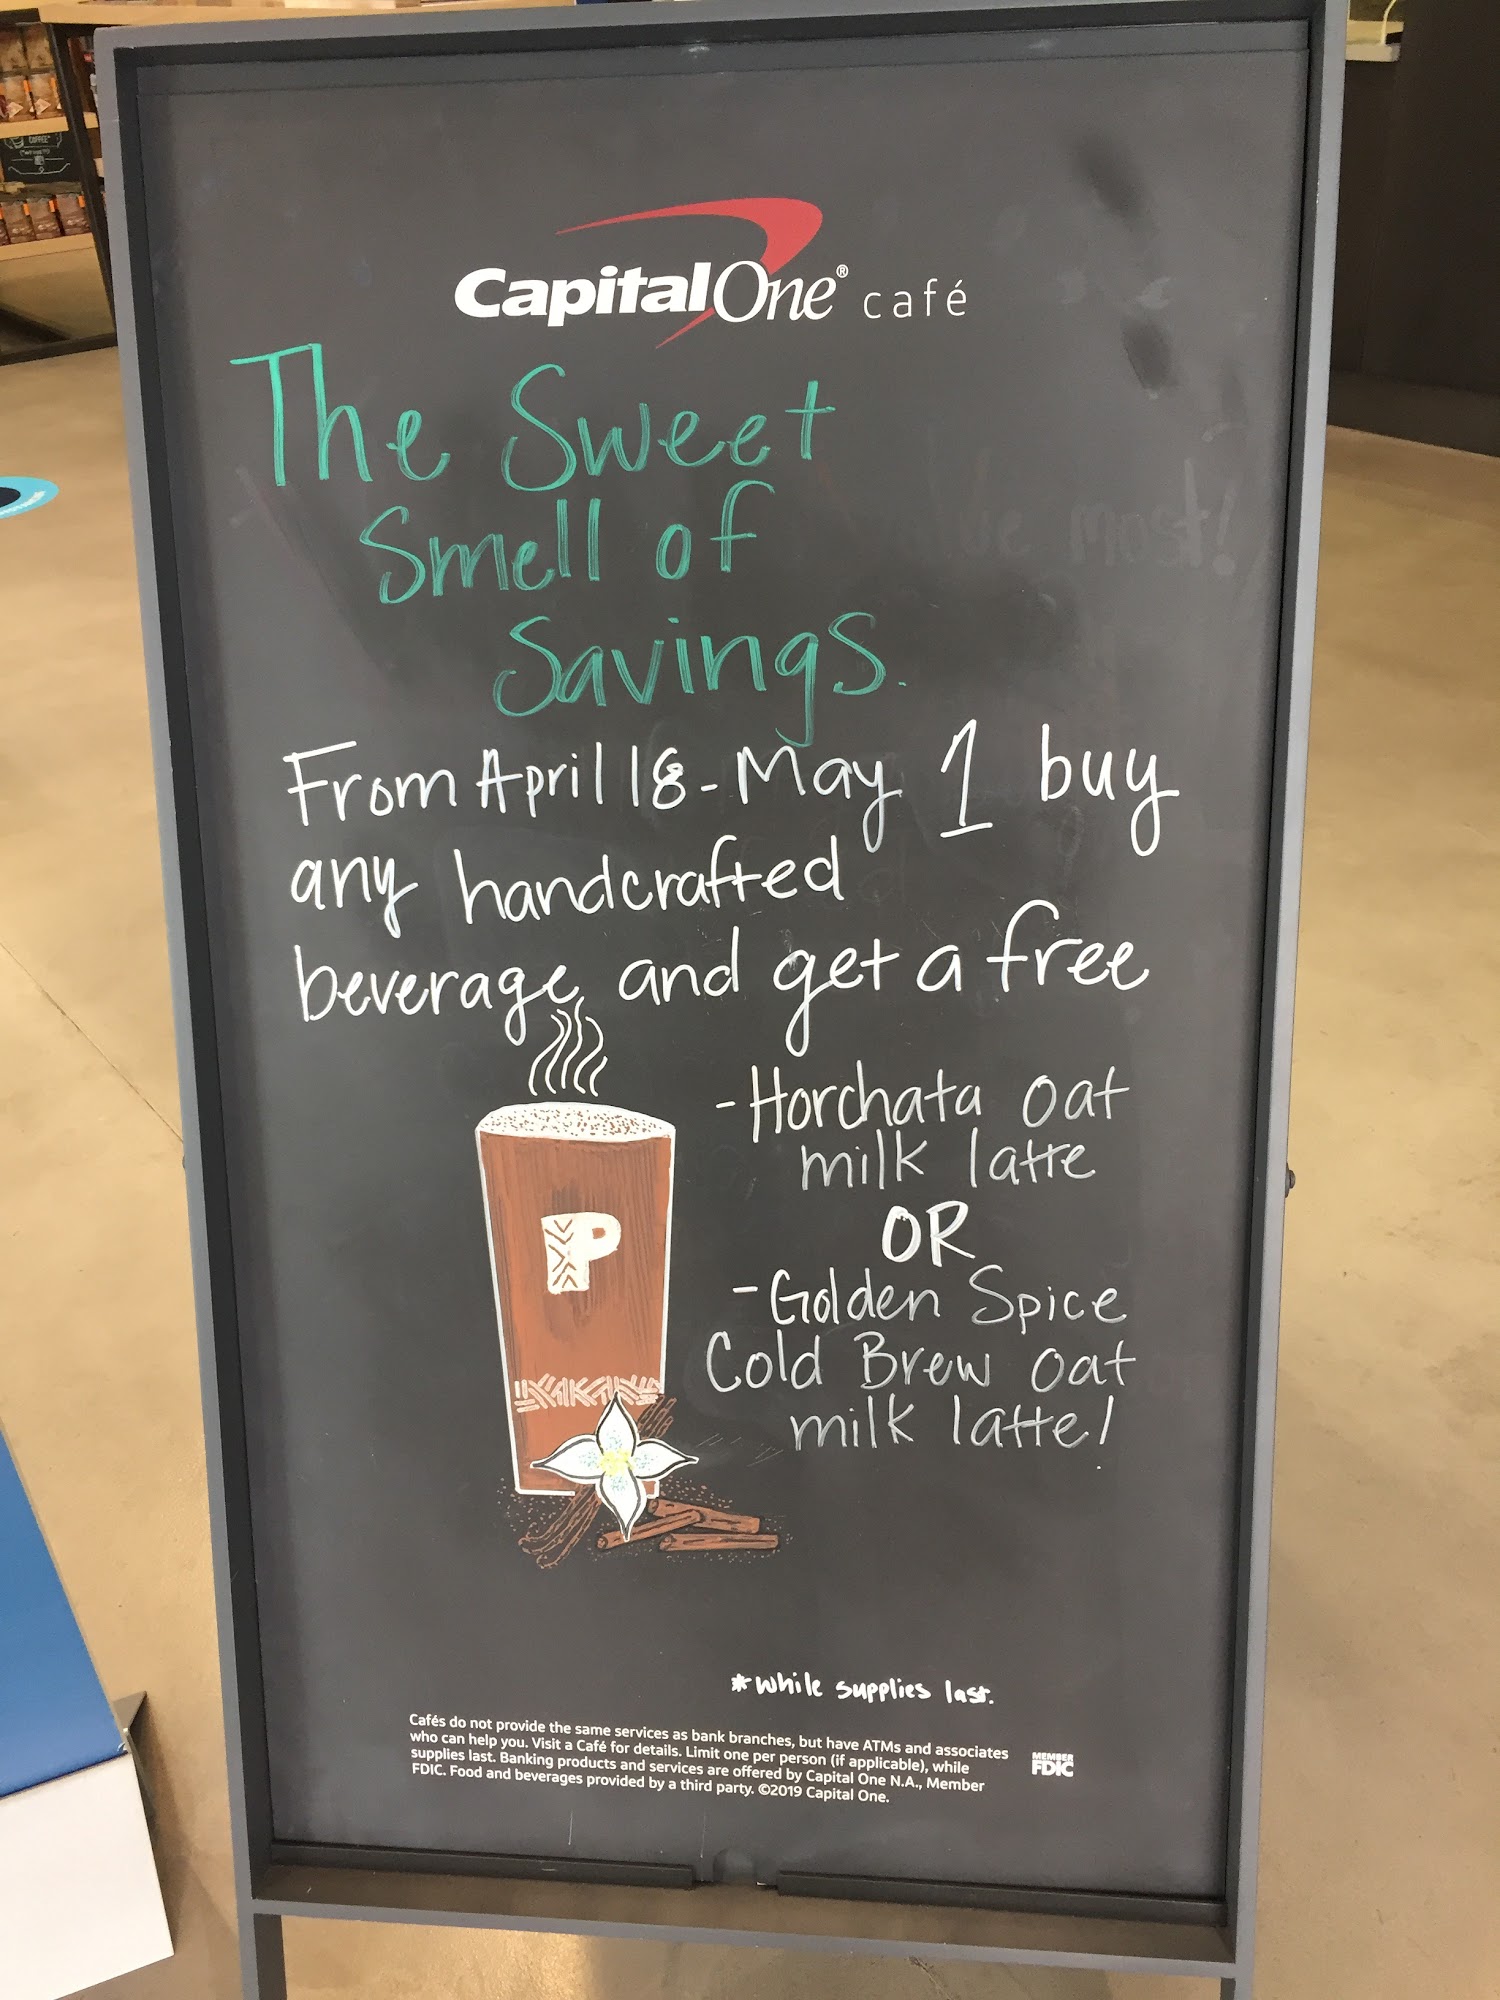 CapitalOne® café
The Sweet
Smell of
Savings.
From April 18 - May 1 buy
any handcrafted
beverage, and get a free
- Horchata oat
milk latte
OR
- Golden Spice
Cold Brew oat
milk latte!
P
*while supplies last.
Cafés do not provide the same services as bank branches, but have ATMs and associates
who can help you. Visit a Café for details. Limit one per person (if applicable), while
supplies last. Banking products and services are offered by Capital One N.A., Member
FDIC. Food and beverages provided by a third party. ©2019 Capital One.
MEMBER
FDIC